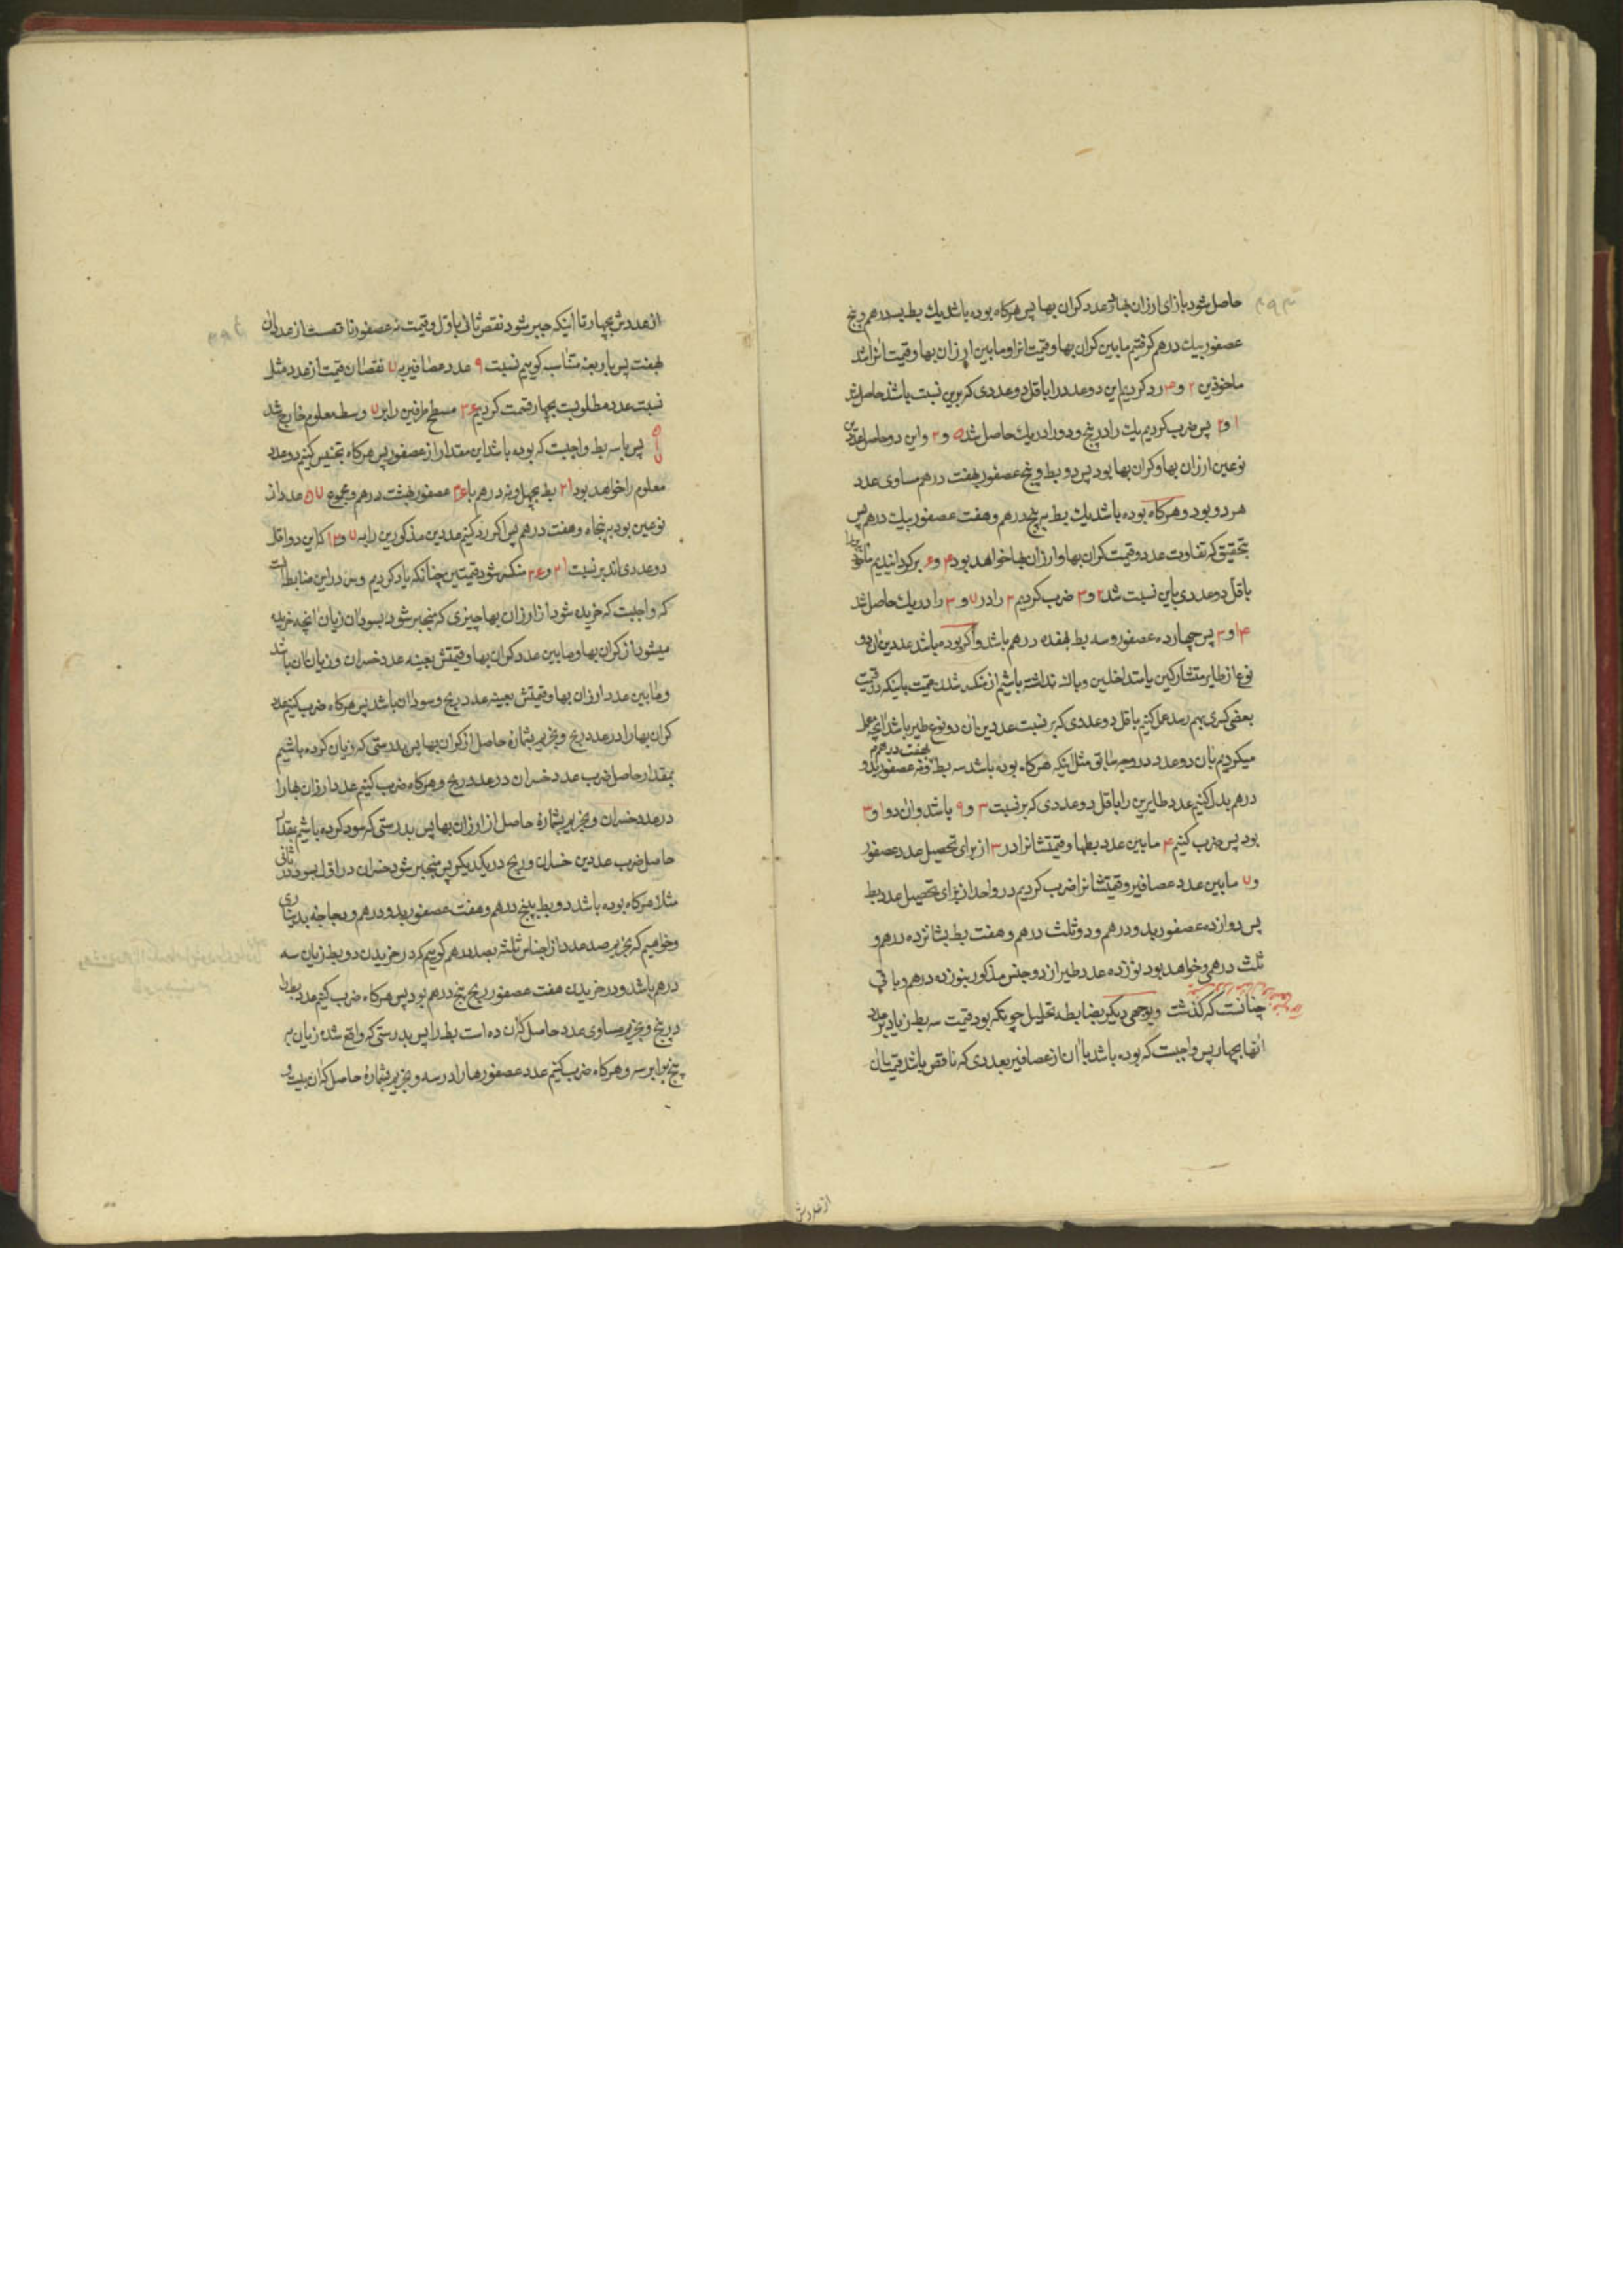 حاصل شود بازای ارزان بها از عدد کران بها پس هرکاه بوده باشد یك بط بسه درهم و پنج
عصفور بیك درهم کرفتیم مابین کران بها و قیمت انرا و مابین ارزان بها و قیمت انرا شد
ماخوذین ۲ و ۴ رد کردیم این دو عدد را باقل دو عددی که برین نسبت باشند حاصل شد
۱ و ۲ پس ضرب کردیم یك را در پنج و دو را در یك حاصل شد ۵ و ۲ و این دو حاصل عددین
نوعین ارزان بها و کران بها بود پس دو بط و پنج عصفور بهفت درهم مساوی عدد
هر دو بود و هرکاه بوده باشد یك بط به پنج درهم و هفت عصفور بیك درهم پس
بتحقیق که تفاوت عدد و قیمت کران بها و ارزان بها خواهد بود ۴ و ۶ برکردانیدیم
باقل دو عددی باین نسبت شد ۲ و ۳ ضرب کردیم ۲ را در ۷ و ۳ را در یك حاصل شد
۱۴ و ۳ پس چهارده عصفور و سه بط بهفده درهم باشد و اکر بوده باشد عددین ان دو
نوع از طایر متشارکین یا متداخلین و باك نداشته باشیم از منکسر شدن قیمت باینکه در قیمت
بعضی کسری بهم رسد عمل کنیم باقل دو عددی که بر نسبت عددین ان دو نوع طیر باشد انچه عمل
میکردیم بان دو عدد در وجه سابق مثل اینکه هرکاه بوده باشد سه بط بهفت درهم و نه عصفور بدو
درهم بدل کنیم عدد طایرین را باقل دو عددی که بر نسبت ۳ و ۹ باشد و ان دو ۱ و ۳
بود پس ضرب کنیم ۴ مابین عدد بطها و قیمتشانرا در ۳ از برای تحصیل عدد عصفور
و ۷ مابین عدد عصافیر و قیمتشانرا ضرب کردیم در واحد از برای تحصیل عدد بط
پس دوازده عصفور بدو درهم و دو ثلث درهم و هفت بط بشانزده درهم و
ثلث درهمی خواهد بود نوزده عدد طیر از دو جنس مذکور بنوزده درهم و باقی
چنانست که کذشت و بوجهی دیکر بضابطه تحلیل چونکه بود قیمت سه بط زیاد بر عدد
انها بچهار پس واجبست که بوده باشد با ان از عصافیر بعددی که ناقص باشد قیمت ان
از عددش
از عددش بچهار تا اینکه جبر شود نقص ثانی باول و قیمت نه عصفور ناقصست از عدد ان
بهفت پس باربعه متناسبه کوییم نسبت ۹ عدد عصافیر به ۷ نقصان قیمت از عدد مثل
نسبت عدد مطلوبست بچهار قسمت کردیم ۳۶ مسطح طرفین را بر ۷ وسط معلوم خارج شد
پس با سه بط واجبست که بوده باشد این مقدار از عصفور پس هرکاه تجنیس کنیم دو عدد
معلوم را خواهد بود ۲۱ بط بچهل و نه درهم با ۳۶ عصفور بهشت درهم و مجموع ۵۷ عدد از
نوعین بود به پنجاه و هفت درهم پس اکر رد کنیم عددین مذکورین را به ۷ و ۱۲ که این دو اقل
دو عددی اند بر نسبت ۲۱ و ۳۶ منکسر شود قیمتین چنانکه یاد کردیم و سر در این ضابطه انست
که واجبست که خریده شود از ارزان بها چیزی که منجبر شود بسود ان زیان انچه خریده
میشود از کران بها و مابین عدد کران بها و قیمتش بعینه عدد خسران و زیان ان باشد
و مابین عدد ارزان بها و قیمتش بعینه عدد ربح و سود ان باشد پس هرکاه ضرب کنیم عدد
کران بها را در عدد ربح و بخریم بشماره حاصل از کران بها پس بدرستی که زیان کرده باشیم
بمقدار حاصل ضرب عدد خسران در عدد ربح و هرکاه ضرب کنیم عدد ارزان بها را
در عدد خسران و بخریم بشماره حاصل از ارزان بها پس بدرستی که سود کرده باشیم بمقدار
حاصل ضرب عددین خسران و ربح در یکدیکر پس منجبر شود خسران در اول بسود در ثانی
مثلا هرکاه بوده باشد دو بط بپنج درهم و هفت عصفور بدو درهم و دجاجه بدیناری
و خواهیم که بخریم صد عدد از اجناس ثلثه بصد درهم کوییم که در خریدن دو بط زیان سه
درهم باشد و در خریدن هفت عصفور ربح پنج درهم بود پس هرکاه ضرب کنیم عدد بط را
در پنج و بخریم مساوی عدد حاصل که ان ده است بط را پس بدرستی که واقع شده زیان بر
پنج برابر سه و هرکاه ضرب کنیم عدد عصفورها را در سه و بخریم بشماره حاصل که ان بیست و